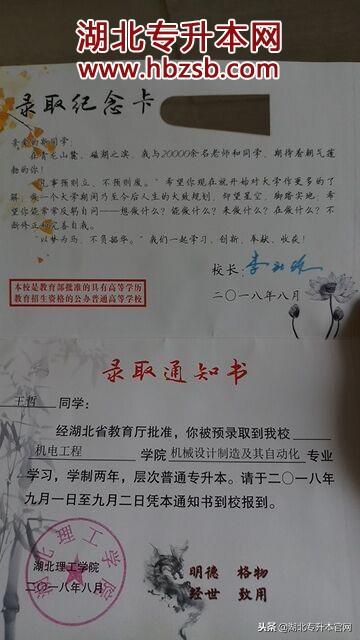 湖北专升本网
www.hbzsb.com
录取纪念卡
亲爱的新同学:
在青龙山麓、磁湖之滨,我与20000余名老师和同学,期待着朝气蓬
勃的你!
“凡事预则立、不预则废。”希望你现在就开始对大学作更多的了
解,做一个大学期间乃至今后人生的大致规划,仰望星空、脚踏实地,希
望你能常常反躬自问——想做什么?能做什么?来做什么?在做什么?不
断修正和完善自我。
“以梦为马、不负韶华。”我们一起学习、创新、奉献、收获!
校长:
二〇一八年八月
本校是教育部批准的具有高等学历
教育招生资格的公办普通高等学校
录取通知书
王哲 同学:
经湖北省教育厅批准,你被预录取到我校
机电工程 学院 机械设计制造及其自动化 专业
学习,学制两年,层次普通专升本。请于二〇一八年
九月一日至九月二日凭本通知书到校报到。
湖北理工学院
湖北理工学院
二〇一八年八月
明德 格物
经世 致用
头条 @湖北专升本官网